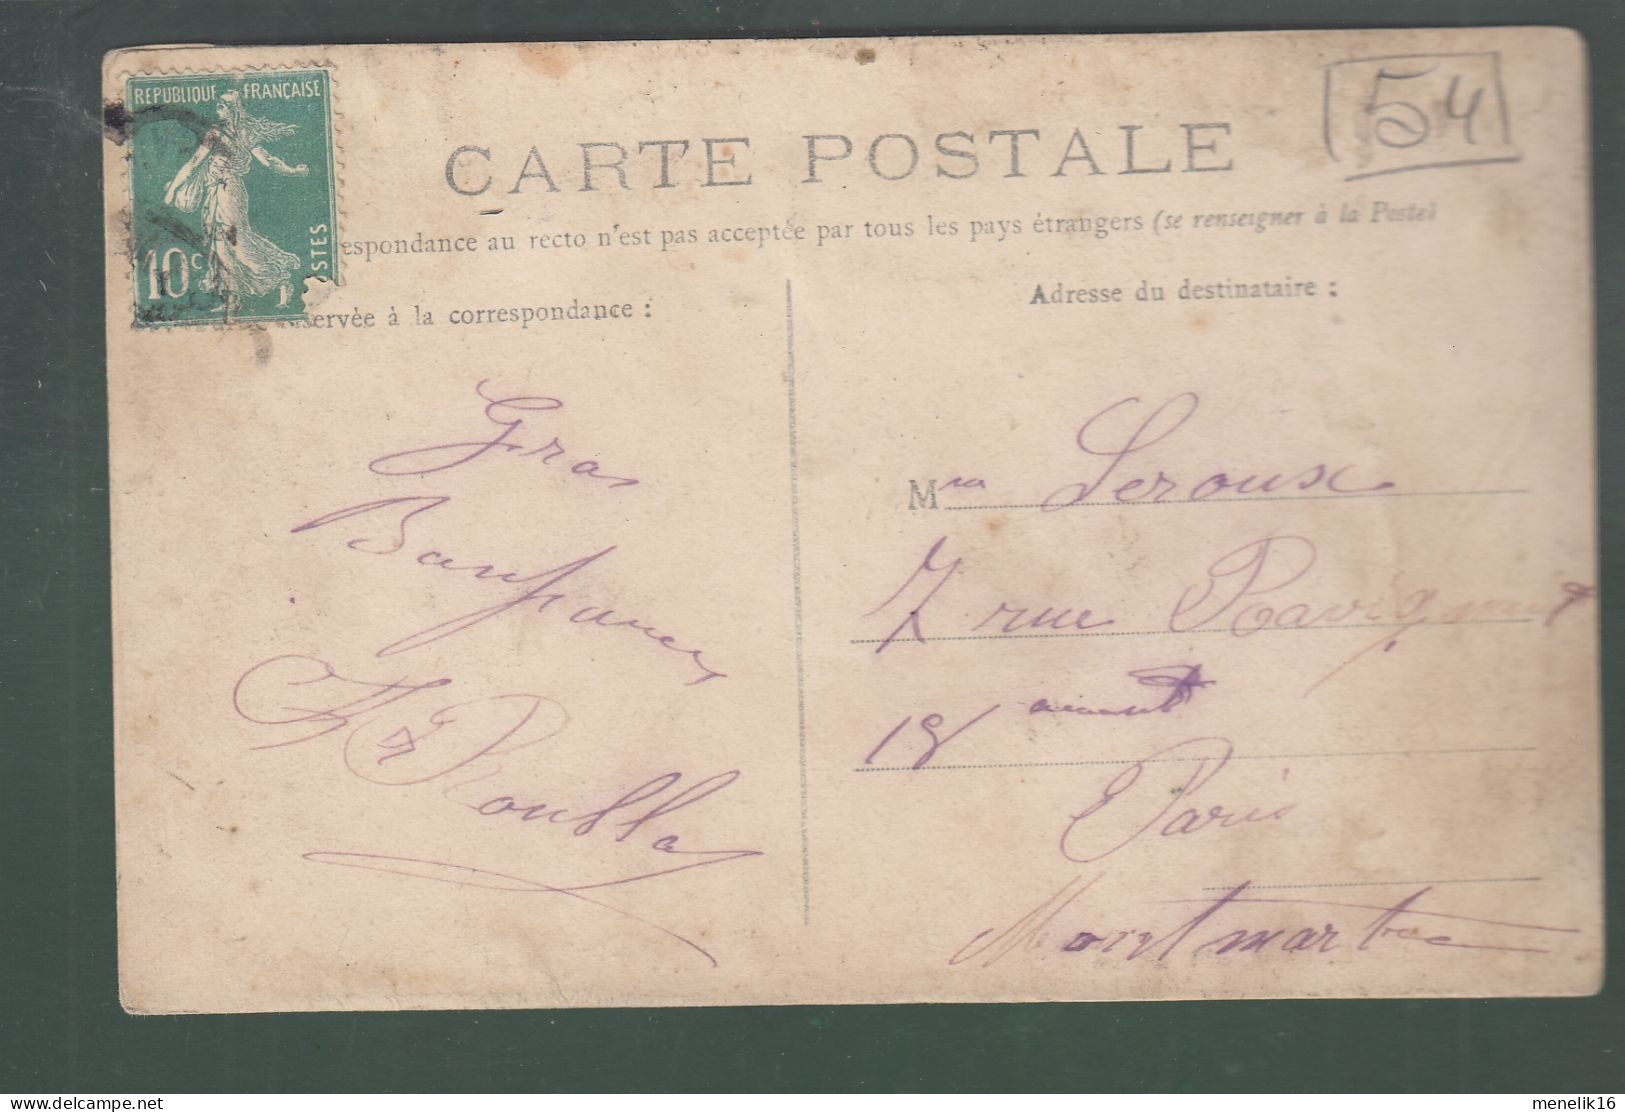 REPUBLIQUE FRANÇAISE
10c
POSTES
54
CARTE POSTALE
espondance au recto n'est pas acceptée par tous les pays étrangers (se renseigner à la Poste)
servée à la correspondance :
Adresse du destinataire :
Gros
Mme Leroux
7 rue Ravignant
18
Paris
Montmartre
menelik16